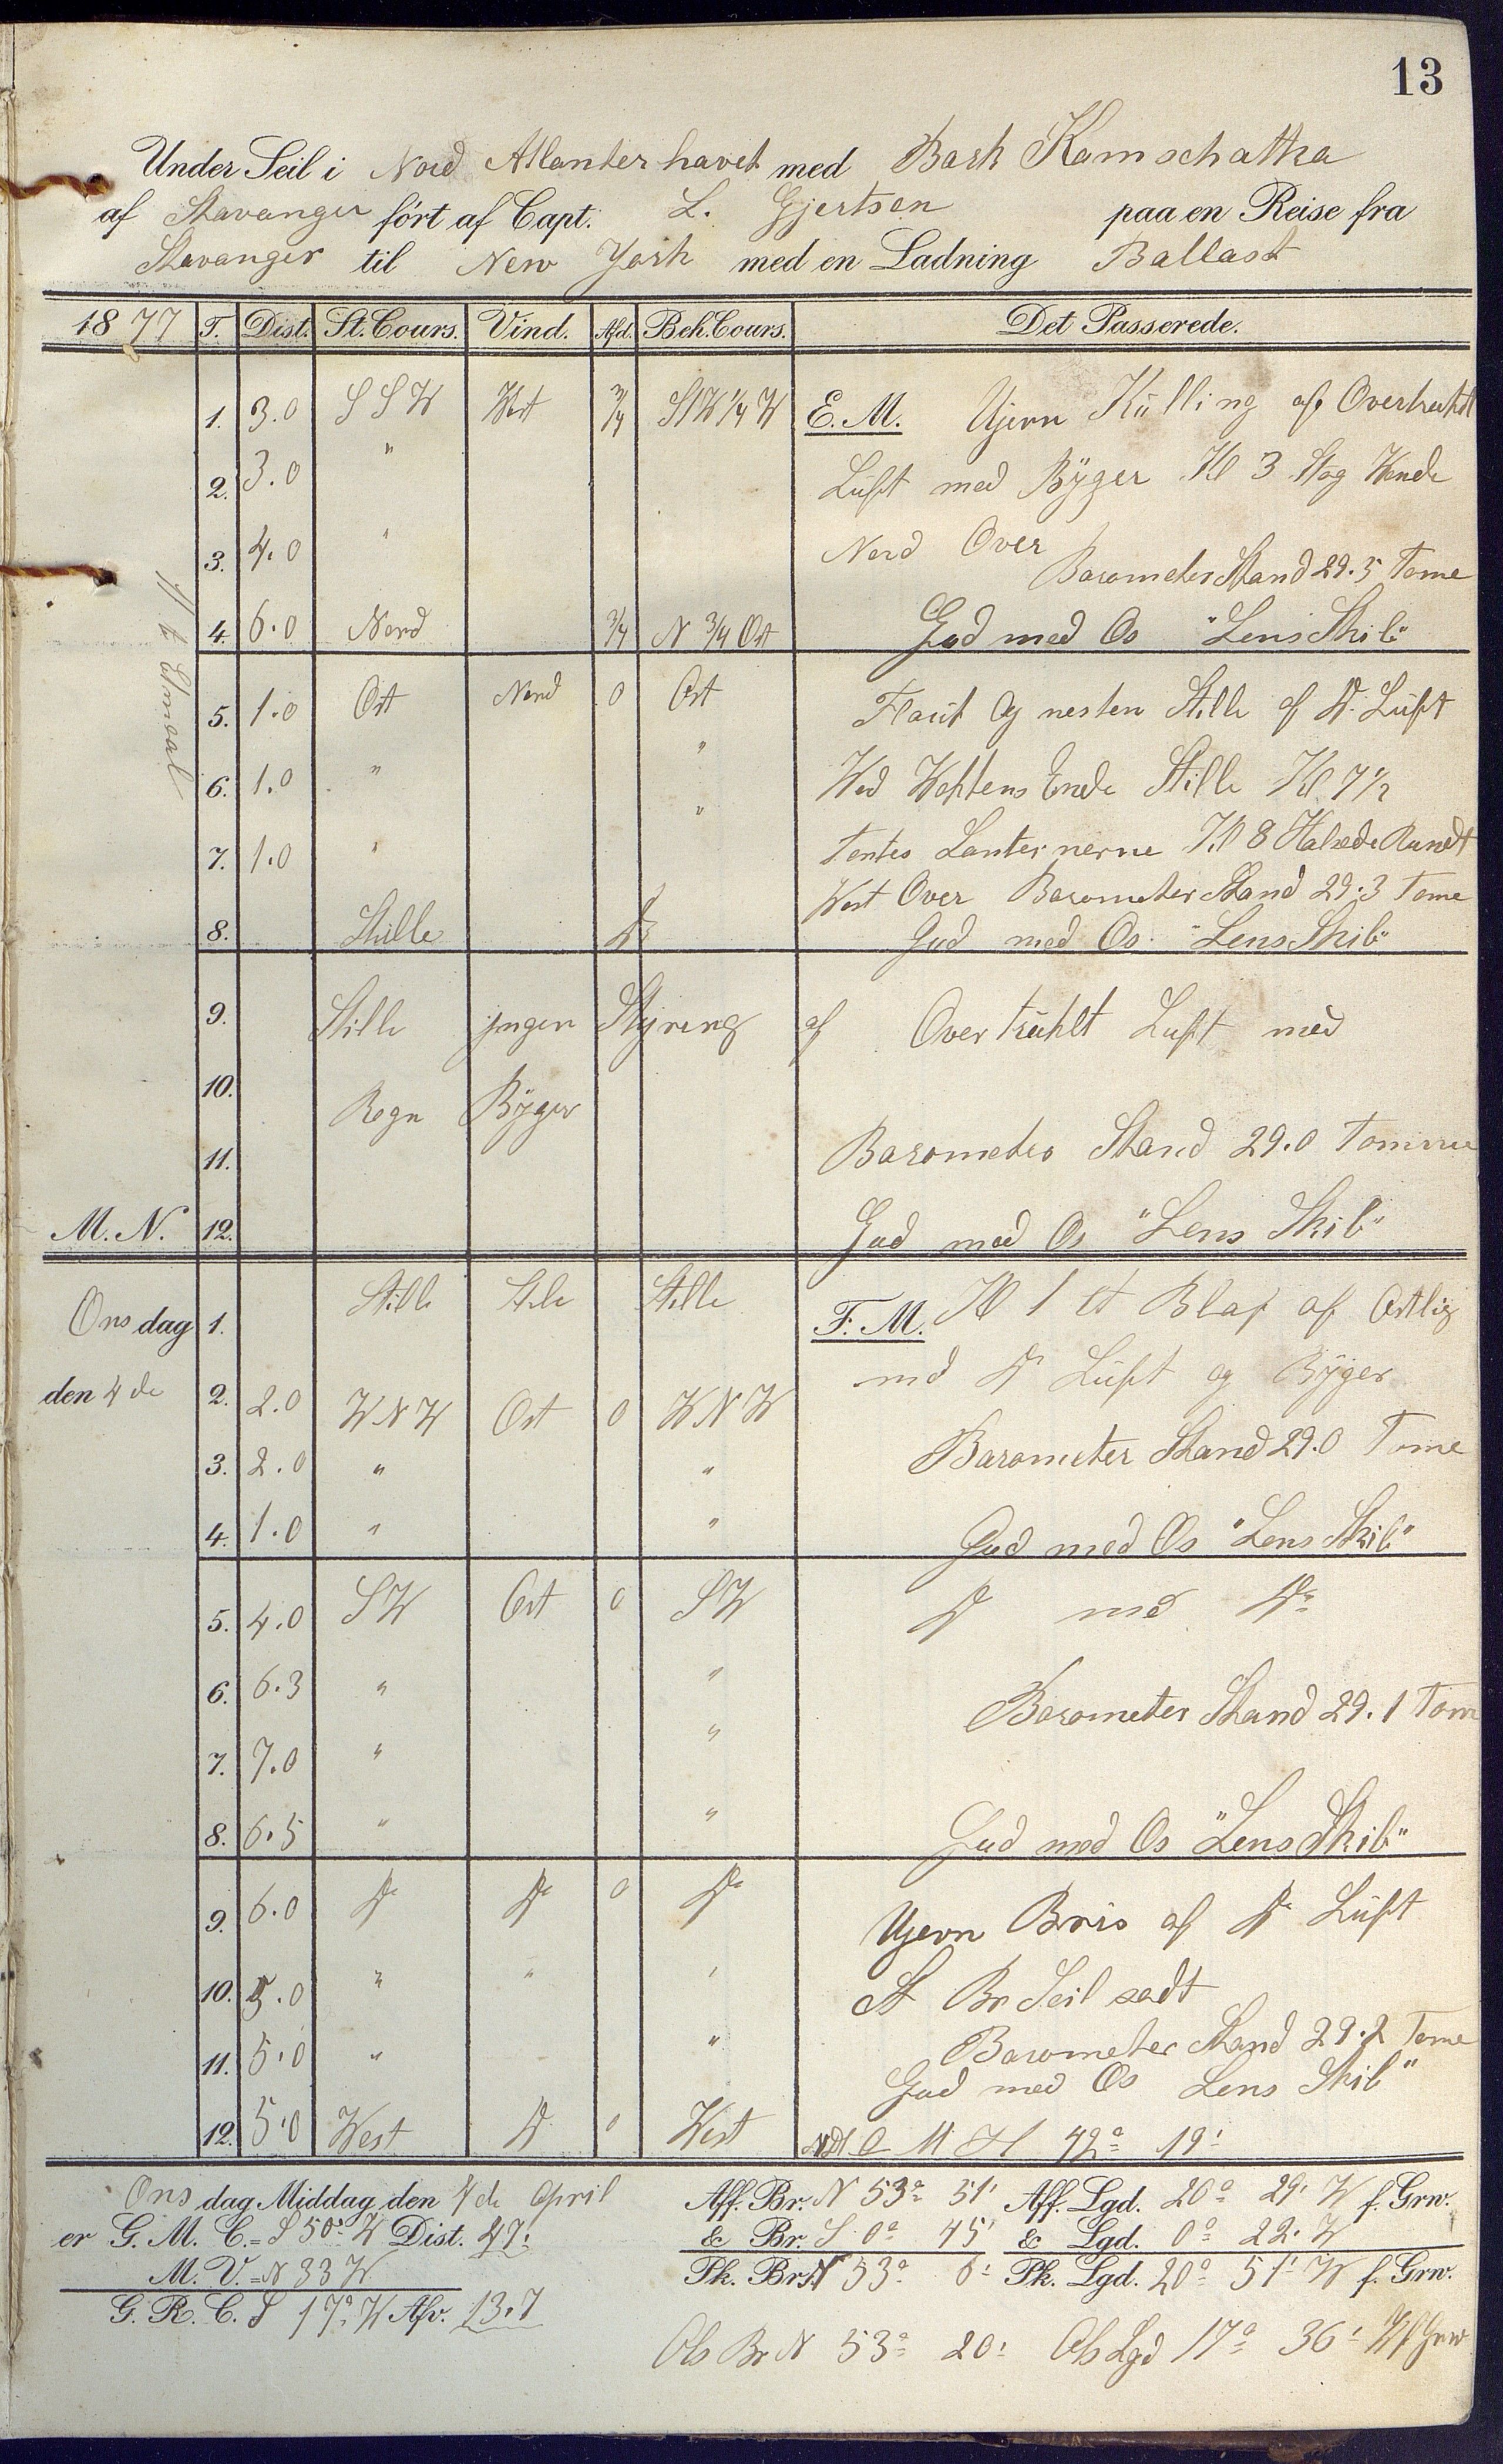 13
Under Seil i Nord Atlanterhavet med Bark Kamschatka
af Stavanger ført af Capt. L. Gjertsen paa en Reise fra
Stavanger til New York med en Ladning Ballast
1877 T. Dist. St. Cours. Vind. Afd. Beh. Cours. Det Passerede.
1. 3.0 SSW West 3/4 StW 1/4 W E. M. Ujevn Külling af Overtrukt
2. 3.0 " Lüft med Byger Kl 3 Stag Vende
3. 4.0 " Nord Over
Barometer Stand 29.5 Tome
4. 6.0 Nord 3/4 N 3/4 Ost Gud med Os "Lens Skib"
5. 1.0 Ost Nord 0 Ost Flaut Og nesten Stille af Do Lüft
6. 1.0 " " Ved Waktens Ende Stille Kl 7 1/2
7. 1.0 " " Tentes Lanternerne Kl 8 Halsede Rundt
West Over Barometer Stand 29.3 Tome
8. Stille Do Gud med Os "Lens Skib"
9. Stille jngen Styring af Overtrükt Luft med
10. Regn Byger
11. Barometer Stand 29.0 Tomme
M. N. 12. Gud med Os "Lens Skib"
Onsdag 1. Stille Stile Stille F. M. Kl 1 et Blaf af Ostlig
den 4de 2. 2.0 WNW Ost 0 WNW md Do Lüft og Byger
3. 2.0 " " Barometer Stand 29.0 Tome
4. 1.0 " " Gud med Os "Lens Skib"
5. 4.0 SW Ost 0 SW Do md Do
6. 6.3 " " Barometer Stand 29.1 Tome
7. 7.0 " "
8. 6.5 " " Gud med Os "Lens Skib"
9. 6.0 Do Do 0 Do Ujevn Bris af Do Lüft
10. 5.0 " " " St Br Seil sadt
11. 5.0 " " Barometer Stand 29.2 Tome
Gud med Os Lens Skib"
12. 5.0 West Do 0 West 42° 19'
Onsdag Middag den 4de April Aff. Br. N 53° 51' Aff. Lgd. 20° 29' W f. Grw.
er G. M. C. = S 50° W Dist. 47' & Br. S 0° 45' & Lgd. 0° 22' W
M. V. = N 33 W Pk. Br. N 53° 6' Pk. Lgd. 20° 51' W f. Grw.
G. R. C. S 17° W Afv. 13.7
Obs Br N 53° 20' Obs Lgd 17° 36' W f Grw